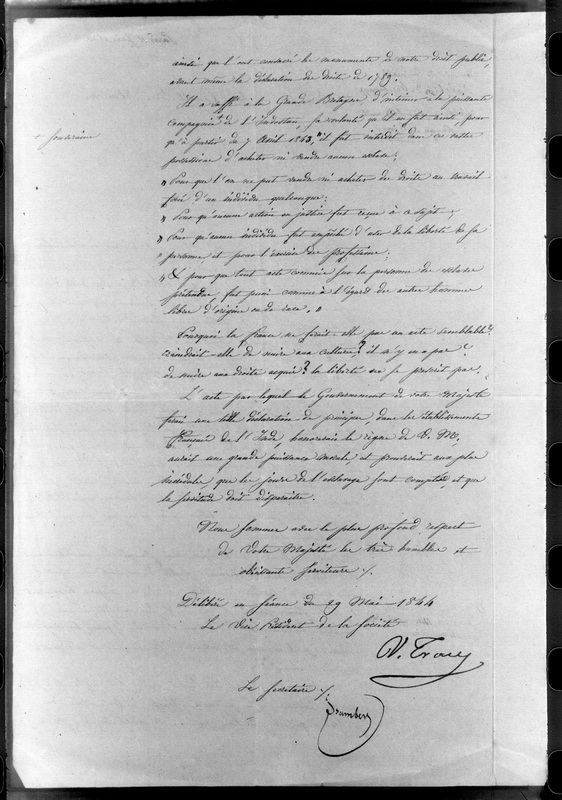 ainsi que l'ont consacré les monuments de notre droit public,
avant même la déclaration des droits de 1789.
Il a suffi à la Grande Bretagne d'intimer à la puissante
compagnie de l'Indostan sa volonté qu'il en fut ainsi, pour
+ souveraine
qu'à partir du 7 Avril 1843, "il fut interdit dans ces vastes
possessions d'acheter ni vendre aucun esclave;
" Pour que l'on ne put vendre ni acheter des droits au travail
forcé d'un individu quelconque;
" Pour qu'aucune action en justice fut reçue à ce sujet;
" Pour qu'aucun individu fut empêché d'user de la liberté de sa
" personne et pour l'exercice des professions;
" & pour que tout acte commis sur la personne des esclaves
prétendus, fut puni comme à l'égard des autres hommes
libres d'origine ou de race. "
Pourquoi la france ne ferait-elle pas un acte semblable?
Craindrait-elle de nuire aux cultures? il n'y en a pas.
de nuire aux droits acquis? la liberté ne se prescrit pas.
L'acte par lequel le Gouvernement de votre Majesté
ferait une telle déclaration de principes dans les établissements
français de l'Inde honorerait le règne de V. M.,
aurait une grande puissance morale, et prouverait aux plus
incrédules, que les jours de l'esclavage sont comptés, et que
la servitude doit disparaitre.
Nous sommes avec le plus profond respect
de Votre Majesté les très humbles et
obéissants serviteurs /.
Délibéré en séance du 29 Mai 1844
Le Vice Président de la Société
V. Tracy
Le secrétaire /.
Isambert